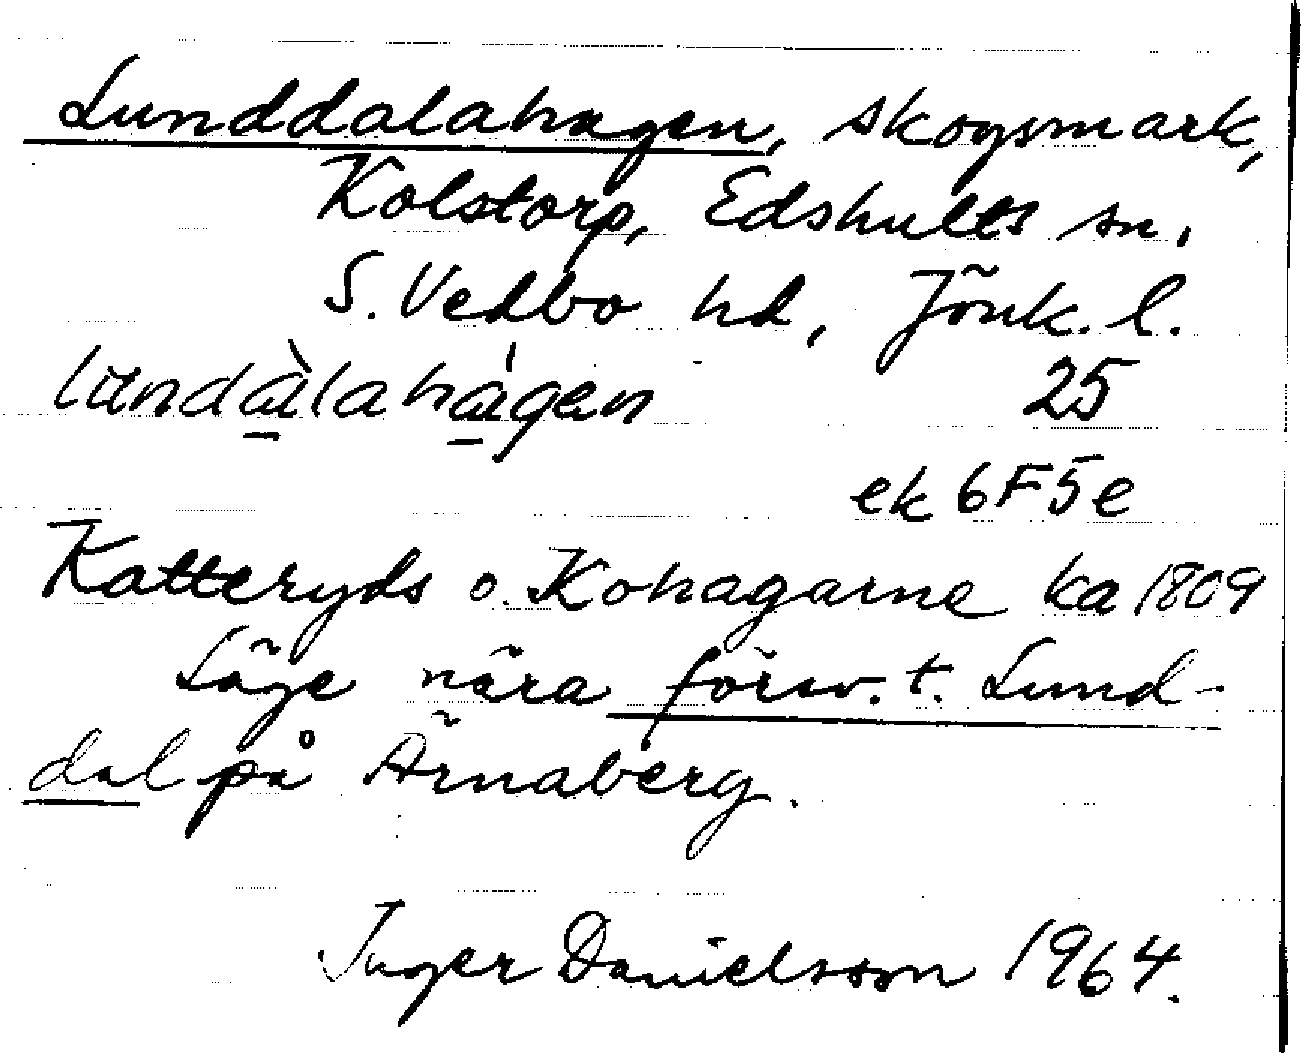 Lunddalahagen, skogsmark,
Kolstorp, Edshults sn.
S. Vedbo hd, Jönk. l.
lundàlahágen 25
ek 6F5e
Katteryds o. Kohagarne ka 1809
Läge nära försv. t. Lund-
dal på Ärnaberg.
Inger Danielsson 1964.